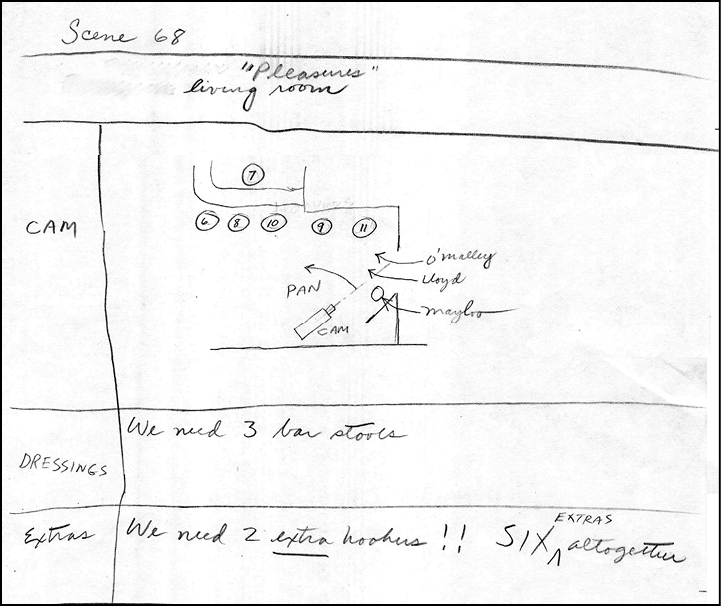 Scene 68
"Pleasures"
living room
CAM
7
6 8 10 9 11
O'Malley
Lloyd
PAN
Mayloo
CAM
DRESSINGS
We need 3 bar stools
Extras
We need 2 extra hookers!! SIX EXTRAS altogether